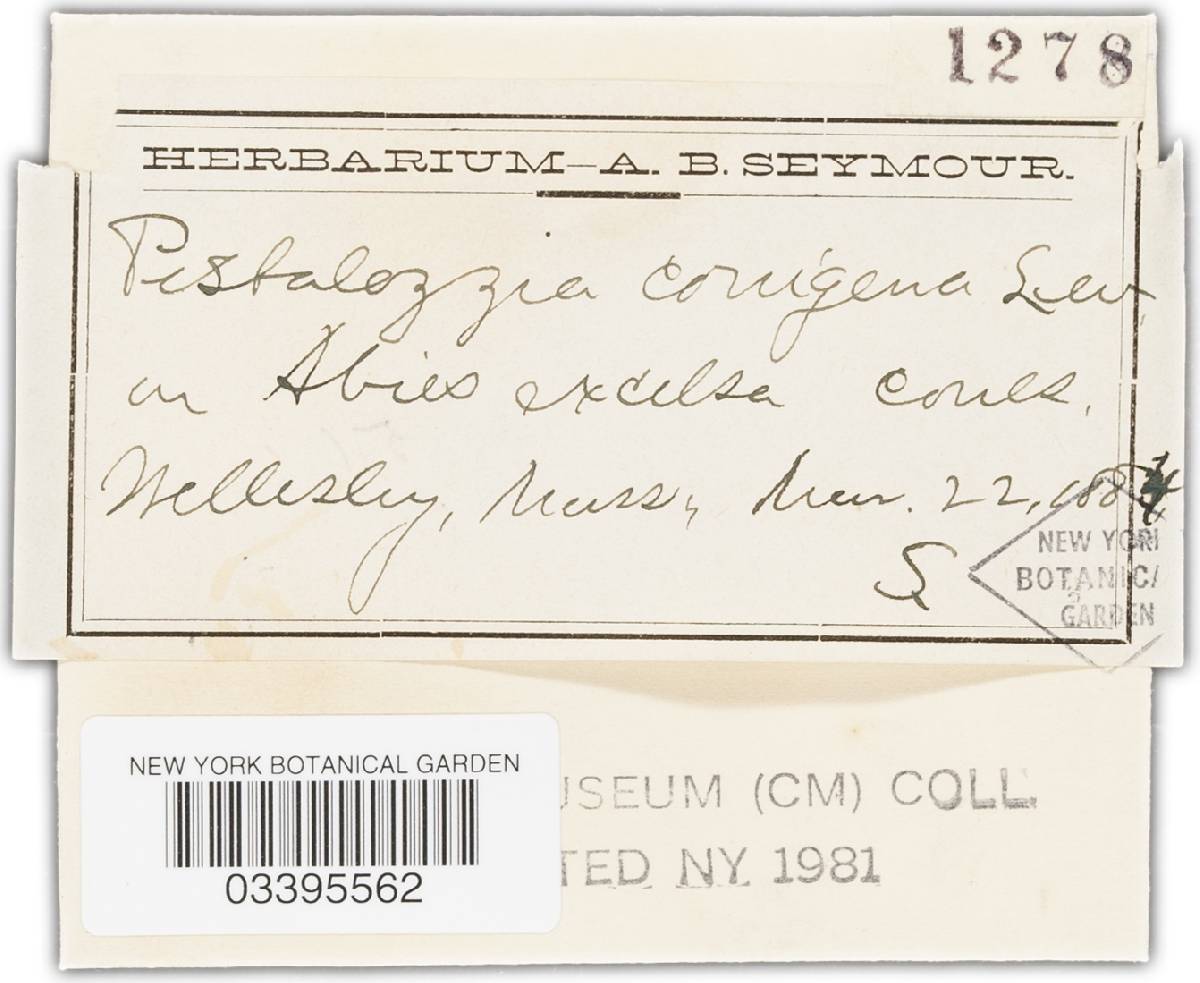 1278
HERBARIUM—A. B. SEYMOUR.
Pestalozzia conigena Lev,
on Abies excelsa cones.
Wellesley, Mass, Mar. 22, 188
S
NEW YOR
BOTANICA
GARDEN
NEW YORK BOTANICAL GARDEN
03395562
USEUM (CM) COLL.
TED NY 1981